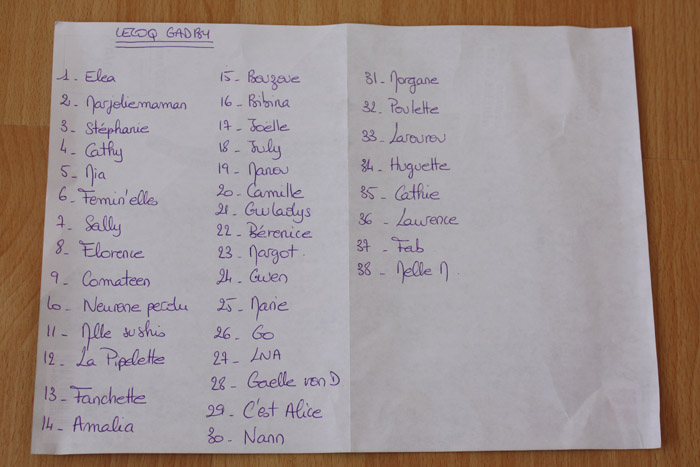 LECOQ GADBY
1 - Elea
2 - Marjoliemaman
3 - Stéphanie
4 - Cathy
5 - Mia
6 - Femin'elles
7 - Sally
8 - Florence
9 - Comateen
10 - Neurone perdu
11 - Mlle sushis
12 - La Pipelette
13 - Fanchette
14 - Amalia
15 - Bouzoue
16 - Bibina
17 - Joëlle
18 - July
19 - Manou
20 - Camille
21 - Gwladys
22 - Bérénice
23 - Margot
24 - Gwen
25 - Marie
26 - Go
27 - LNA
28 - Gaelle von D
29 - C'est Alice
30 - Nann
31 - Morgane
32 - Poulette
33 - Lavourou
34 - Huguette
35 - Cathie
36 - Laurence
37 - Fab
38 - Melle M